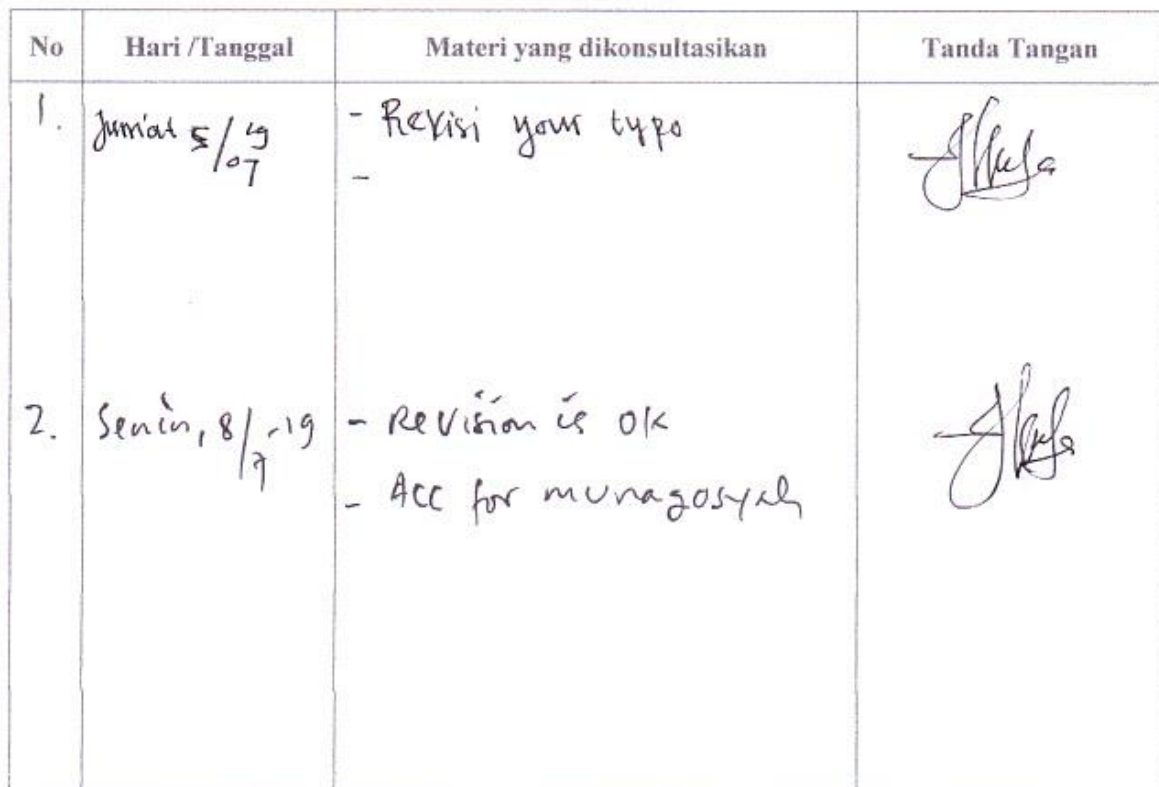 No Hari /Tanggal Materi yang dikonsultasikan Tanda Tangan
1. Jum'at 5/07 19 - Revisi your typo
-
2. Senin, 8/7-19 - Revision is ok
- Acc for munaqosyah